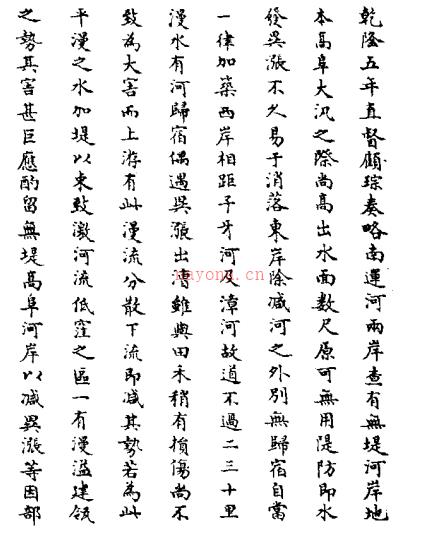 乾隆五年直督顧琮奏略南運河兩岸查有無堤河岸地
本高阜大汛之際尚高出水面數尺原可無用隄防即水
發異漲不久易于消落東岸除減河之外別無歸宿自當
一律加築西岸相距子牙河及漳河故道不過二三十里
漫水有河歸宿偶遇異漲出漕雖與田禾稍有損傷尚不
致為大害而上游有此漫流分散下流即減其勢若為此
平漫之水加堤以束致激河流低窪之區一有漫溢建瓴
之勢其害甚巨應酌留無堤高阜河岸以減異漲等因部
nayong.cn